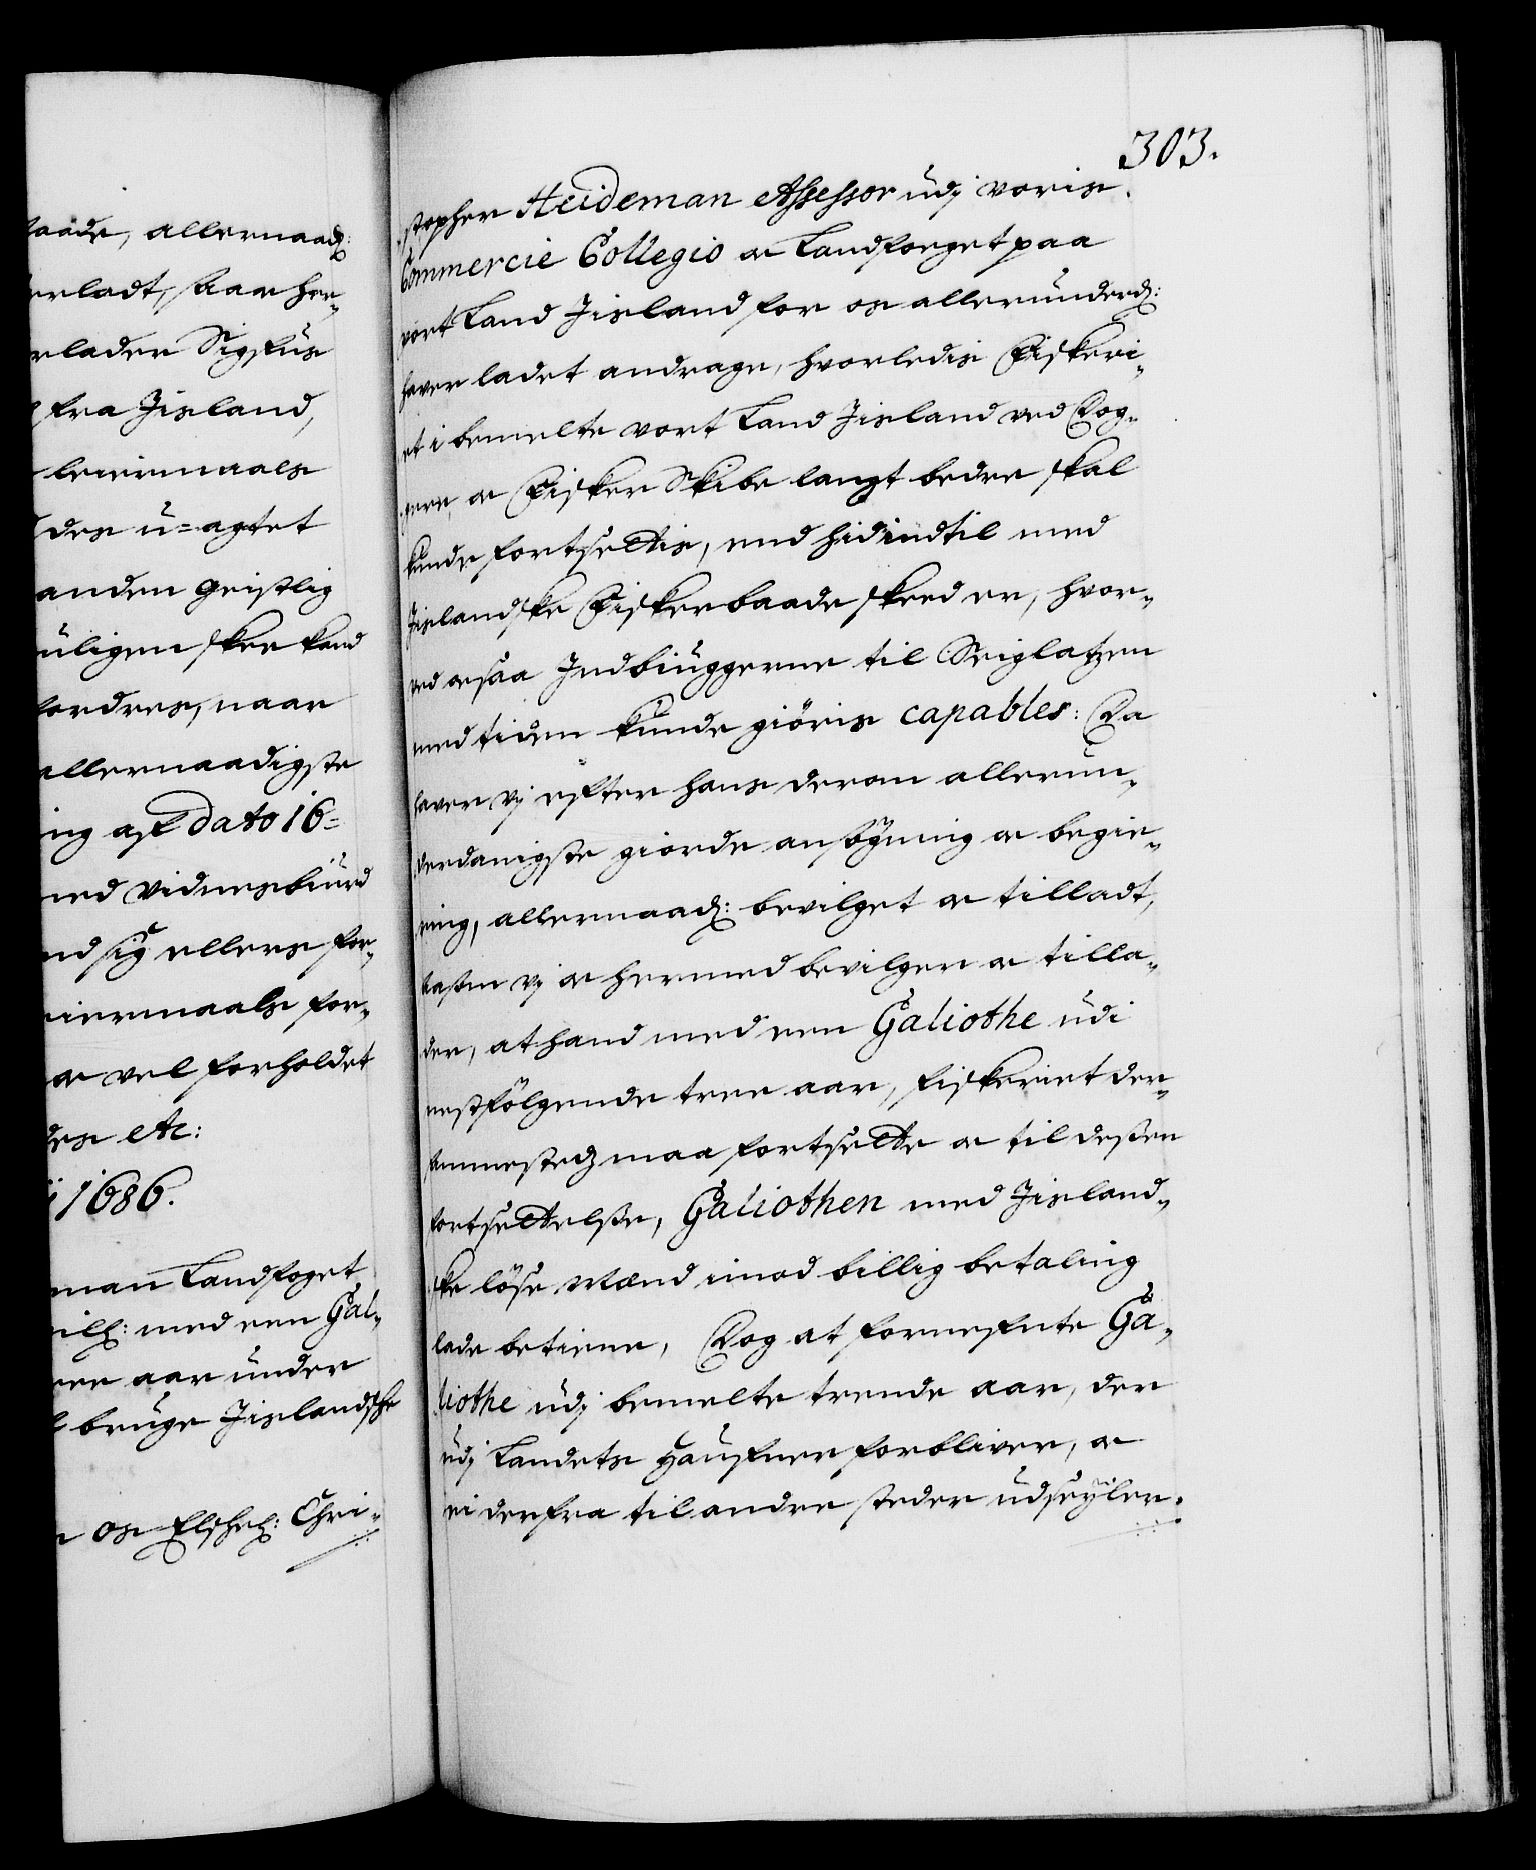 aade, allernaad:
erladt, saa som her,,
rlader Sigfus
fra Jisland,
leiermaals
des u=agtet
anden geistlig
uligen skee kand
fordres, naar
allernaadigste
ing af dato 16=
med vidnesbiurd
nd sig ellers for,,
eiermaals for,,
oc vel forholdet
des etc:
1686.
man Landfoget
vilg: med een Gal,,
ree aar under
bruge Jislandske
os Elschel: Chri,,
303.
stopher Heideman Assessor udj voris
Commercie Collegio oc Landfoeget paa
vort Land Jisland for os allerunderd:
haver ladet andrage, hvorledis Fiskeri,,
et i bemelte vort Land Jisland ved Dog,,
gere, oc Fisker Skibe langt bedre skal
kunde fortsettis, end hidindtil med
Jislandske Fiskerbaade skeed er, hvor,,
ved ocsaa Indbiuggerne til Seiglatzen
med tiden kunde giöris capables: Da
haver vj efter hans derom allerun,,
derdanigste giorde ansögning oc begie,,
ring, allernaad: bevilget oc tilladt,
saasom vj oc hermed bevilger oc tilla,,
der, at hand med een Galiothe udi
nestfölgende tree aar, fiskeriet der,,
sammestedz maa fortsette oc til dessen
fortsettelsse, Galiothen med Jisland,,
ske löse Mænd imod billig betaling
lade betiene, Dog at forneffnte Ga,,
liothe udj bemelte trende aar, der
udj Landets Hauffner forbliver, oc
ei derfra til andre steder udseyler.